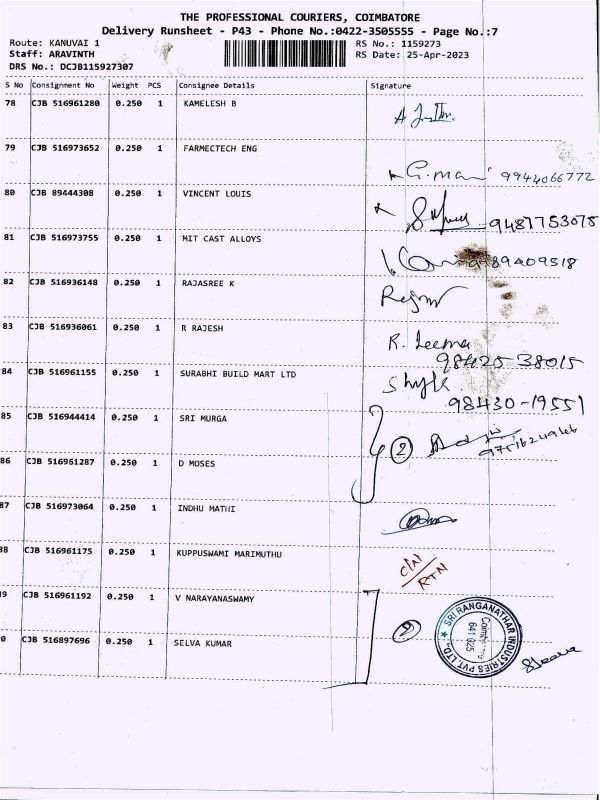 THE PROFESSIONAL COURIERS, COIMBATORE
Delivery Runsheet - P43 - Phone No.:0422-3505555 - Page No.:7
Route: KANUVAI 1
Staff: ARAVINTH
DRS No.: DCJB115927307
RS No.: 1159273
RS Date: 25-Apr-2023
S No Consignment No Weight PCS Consignee Details Signature
78 CJB 516961280 0.250 1 KAMELESH B
79 CJB 516973652 0.250 1 FARMECTECH ENG G. mani 9944066772
80 CJB 89444308 0.250 1 VINCENT LOUIS 9487753075
81 CJB 516973755 0.250 1 MIT CAST ALLOYS
82 CJB 516936148 0.250 1 RAJASREE K
83 CJB 516936061 0.250 1 R RAJESH R. Leema
98425 38015
84 CJB 516961155 0.250 1 SURABHI BUILD MART LTD
98430-19551
85 CJB 516944414 0.250 1 SRI MURGA 2
86 CJB 516961287 0.250 1 D MOSES
87 CJB 516973064 0.250 1 INDHU MATHI
88 CJB 516961175 0.250 1 KUPPUSWAMI MARIMUTHU C/N/RTN
9 CJB 516961192 0.250 1 V NARAYANASWAMY 2
0 CJB 516897696 0.250 1 SELVA KUMAR
SRI RANGANATHAR INDUSTRIES PVT. LTD.
641 025